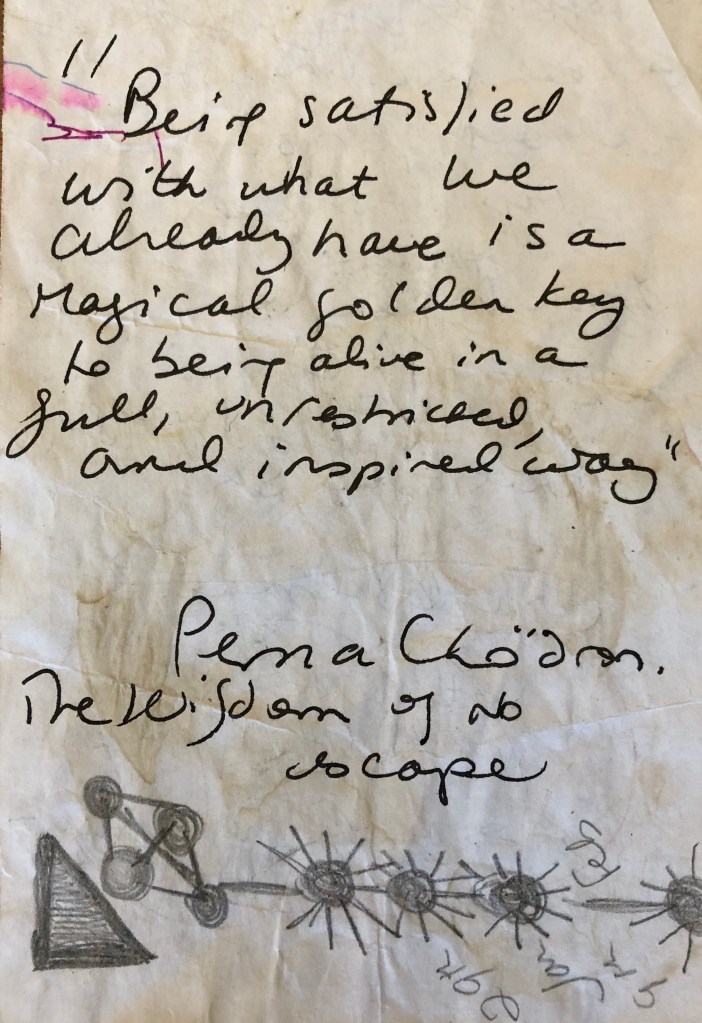 "Being satisfied
with what we
already have is a
magical golden key
to being alive in a
full, unrestricted,
and inspired way"
Pema Chödrön.
The Wisdom of No
escape